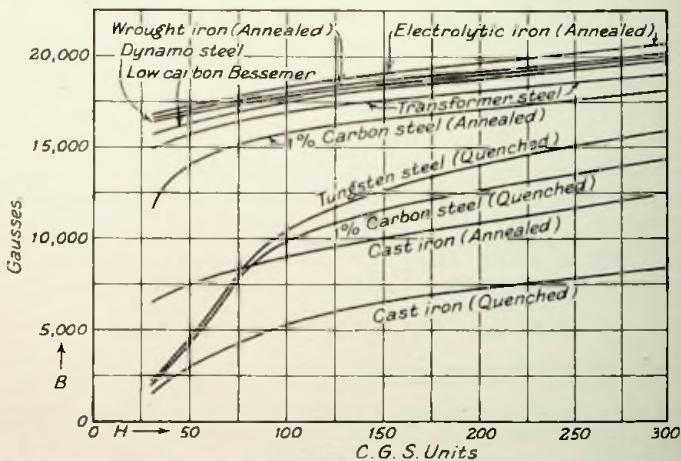 Wrought iron (Annealed)
Electrolytic iron (Annealed)
Dynamo steel
Low carbon Bessemer
Transformer steel
1% Carbon steel (Annealed)
Tungsten steel (Quenched)
1% Carbon steel (Quenched)
Cast iron (Annealed)
Cast iron (Quenched)
20,000
15,000
10,000
5,000
0
Gausses.
B
0 H 50 100 150 200 250 300
C.G.S. Units